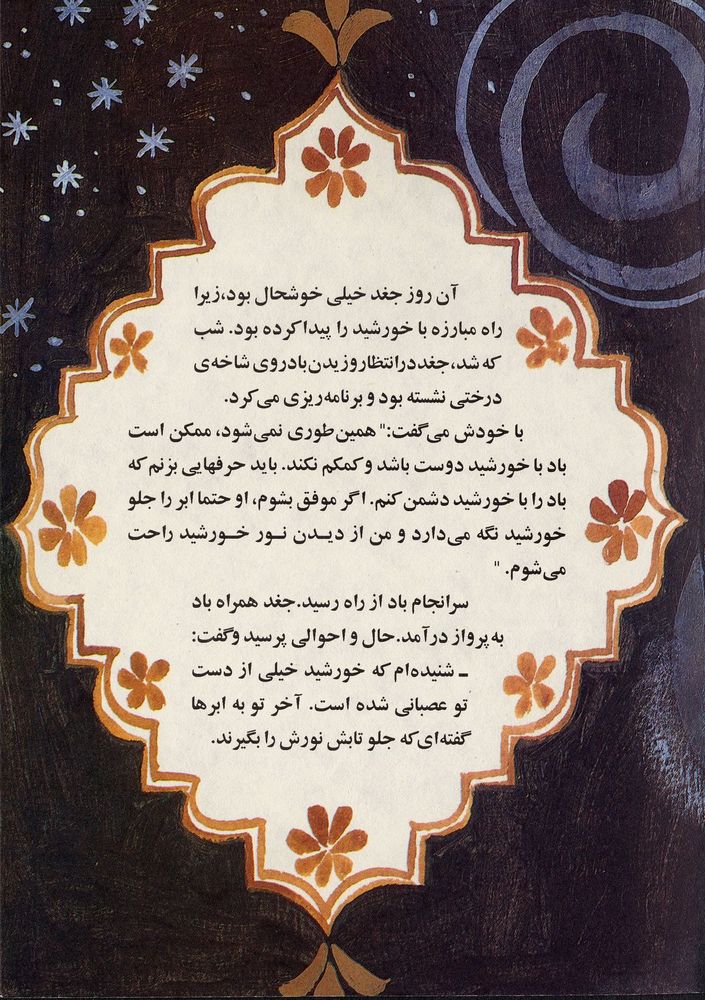 آن روز جغد خیلی خوشحال بود،زیرا
راه مبارزه با خورشید را پیداکرده بود. شب
که شد،جغددرانتظاروزیدن‌بادروی شاخه‌ی
درختی نشسته بود و برنامه‌ریزی می‌کرد.
با خودش می‌گفت:" همین‌طوری نمی‌شود، ممکن است
باد با خورشید دوست باشد و کمکم نکند. باید حرفهایی بزنم که
باد را با خورشید دشمن کنم. اگر موفق بشوم، او حتما ابر را جلو
خورشید نگه می‌دارد و من از دیـدن نـور خـورشید راحت
می‌شوم. "
سرانجام باد از راه رسید.جغد همراه باد
به‌پرواز درآمد.حال و احوالی پرسید وگفت:
ـ شنیده‌ام که خورشید خیلی از دست
تو عصبانی شده است. آخر تو به ابرها
گفته‌ای‌که جلو تابش نورش را بگیرند.